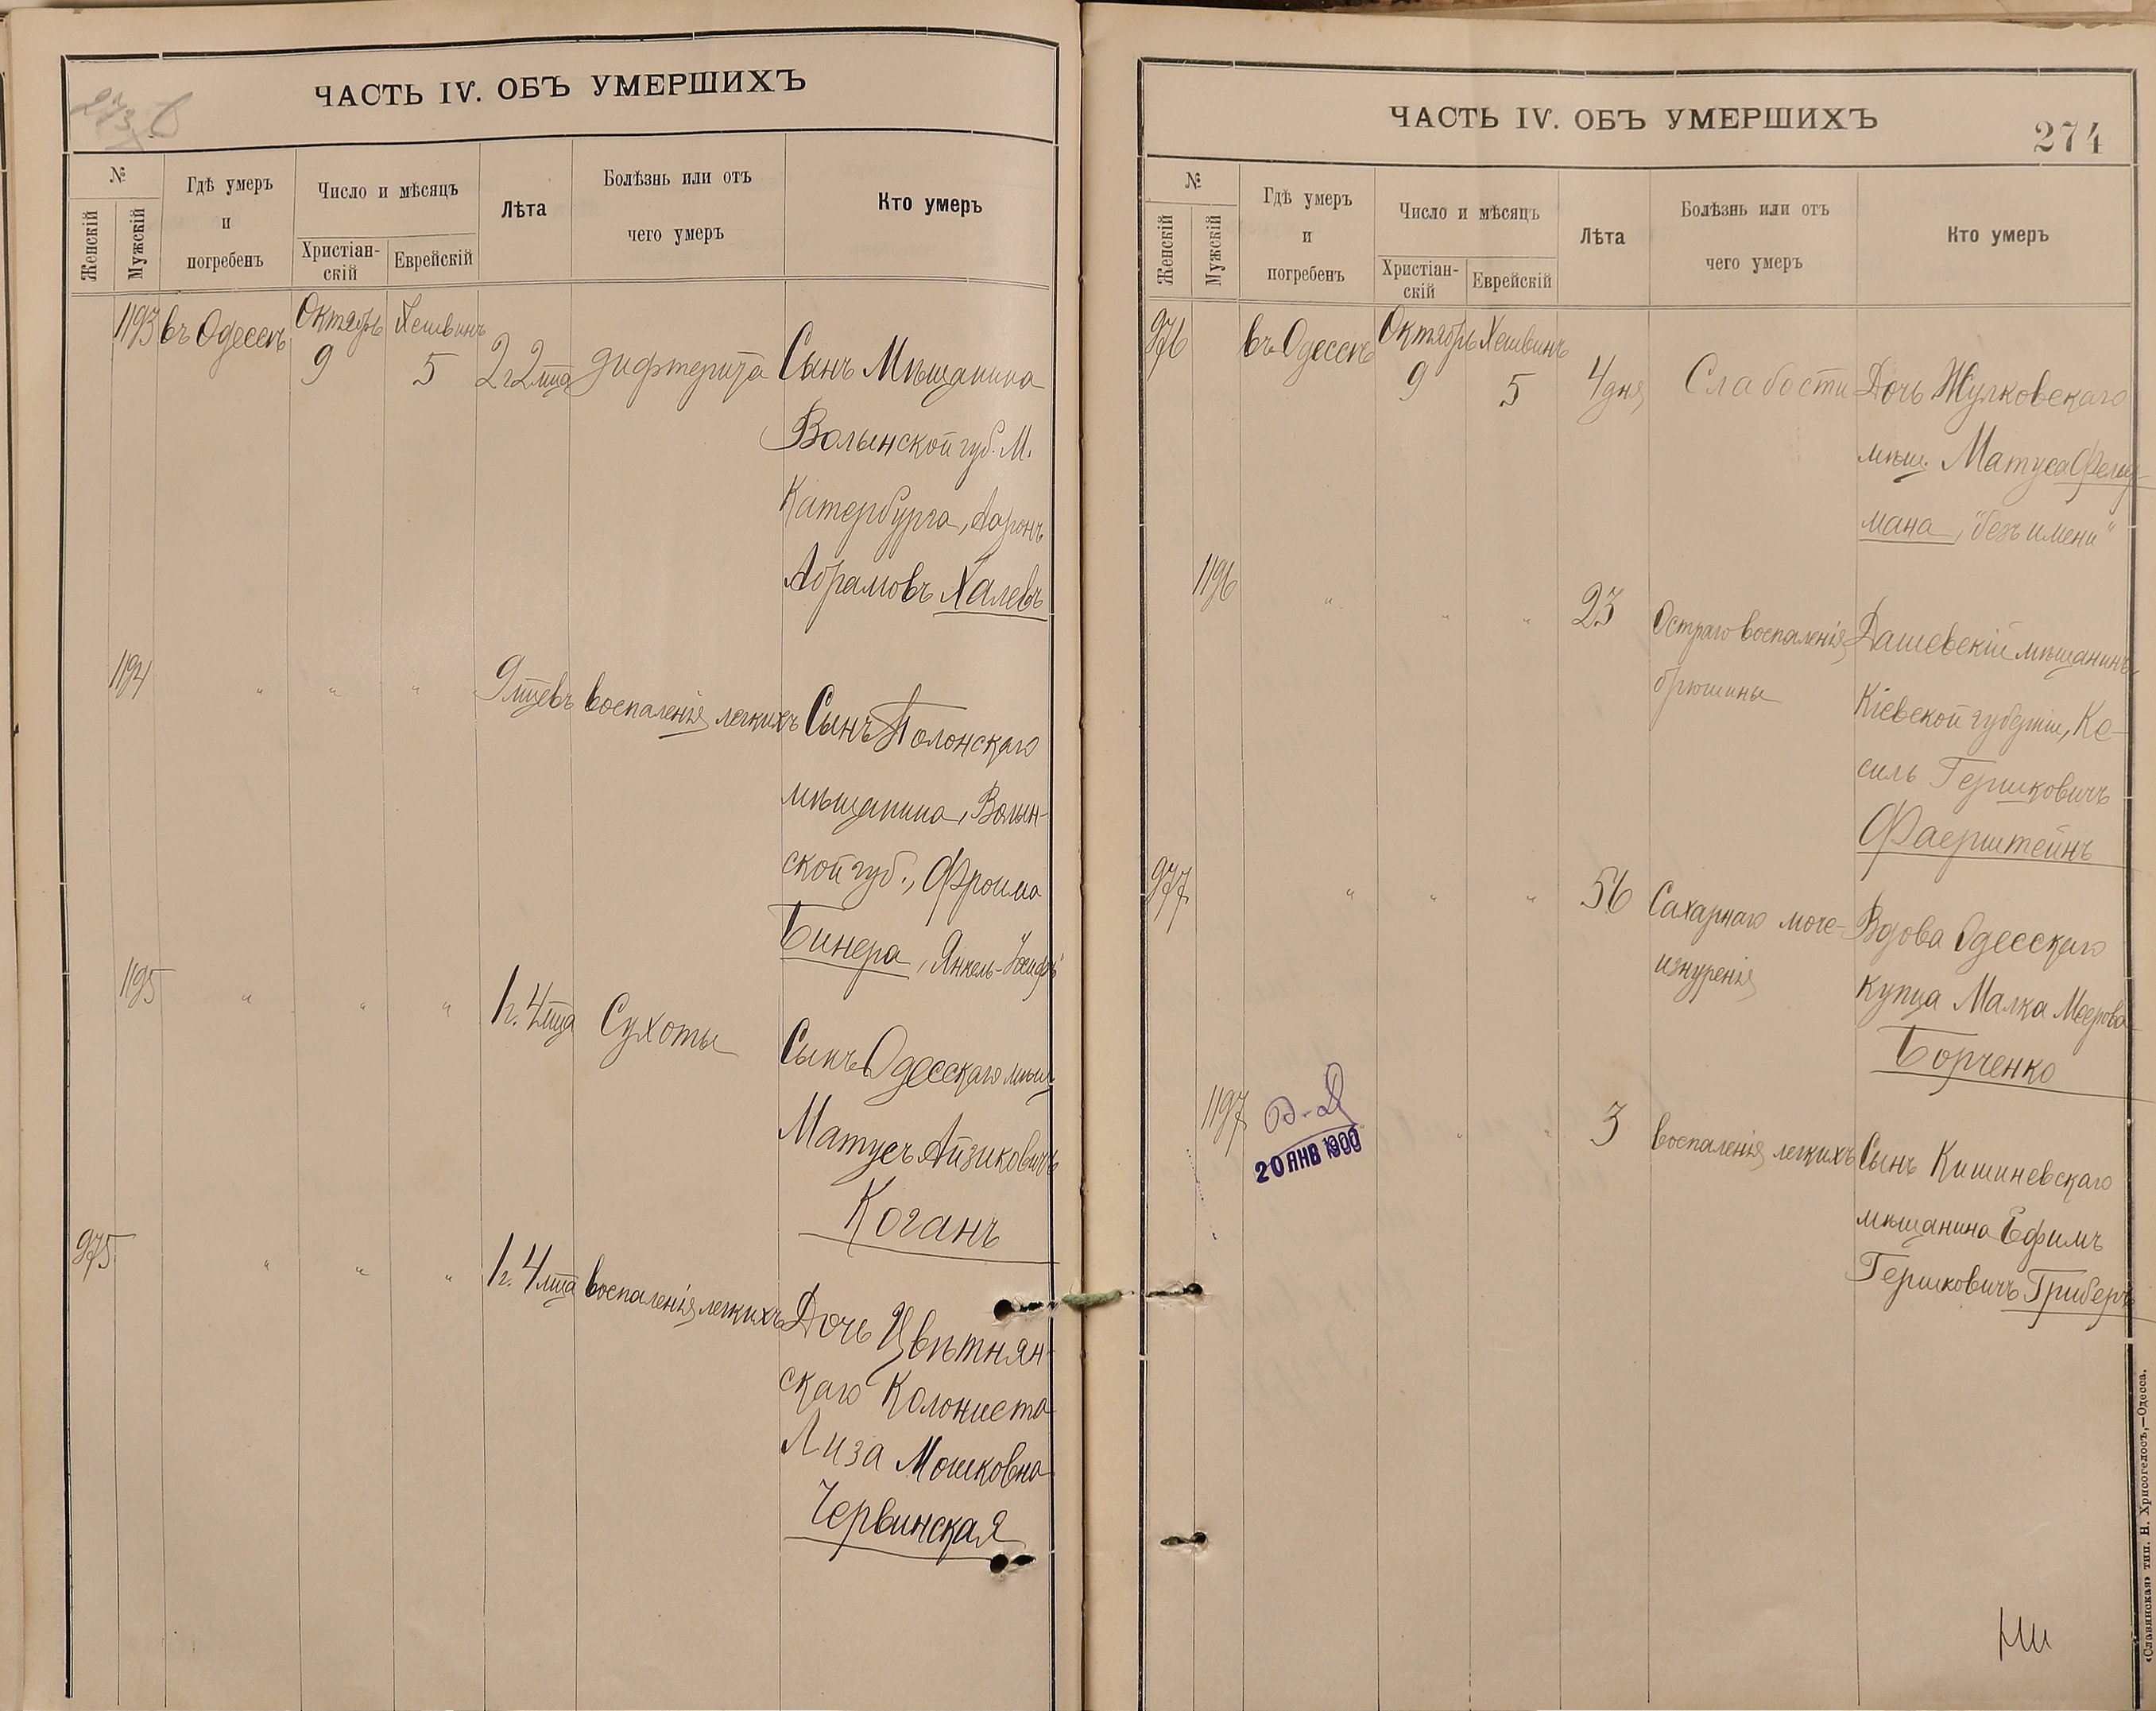 ЧАСТЬ IV. ОБЪ УМЕРШИХЪ
№
Женскій
Мужскій
Гдѣ умеръ
и
погребенъ
Число и мѣсяцъ
Христіан-
скій
Еврейскій
Лѣта
Болѣзнь или отъ
чего умеръ
Кто умеръ
1193 въ Одессѣ Октябрь Хешвинъ
9 5 2 г 2 мца дифтерита Сынъ Мѣщанина
Волынской губ. М.
Катербурга, Ааронъ
Абрамовъ Халевъ
1194 " " " 9 мцевъ воспаленія легкихъ Сынъ Полонскаго
мѣщанина, Волын-
ской губ., Фроима
Бинера, Янкель-Іосифъ"
1195 " " " 1 г. 4 мца Сухоты Сынъ Одесскаго мѣщ.
Матусъ Айзиковичъ
Коганъ
975 " " " 1 г. 4 мца воспаленія легкихъ Дочь Цвѣтнян-
скаго Колониста
Лиза Мошковна
Червинская
ЧАСТЬ IV. ОБЪ УМЕРШИХЪ
274
№
Женскій
Мужскій
Гдѣ умеръ
и
погребенъ
Число и мѣсяцъ
Христіан-
скій
Еврейскій
Лѣта
Болѣзнь или отъ
чего умеръ
Кто умеръ
976 въ Одессѣ Октябрь Хешвинъ
9 5 4 дня Слабости Дочь Жулковскаго
мѣщ. Матуса Фельд-
мана, "безъ имени"
1196 " " " 23 Остраго воспаленія Дашевскій мѣщанинъ,
брюшины Кіевской губерніи, Ке-
силь Гершковичъ
Фаерштейнъ
977 " " " 56 Сахарнаго моче- Вдова Одесскаго
изнуренія купца Малка Меерова
Борченко
1197 " " " 3 воспаленія легкихъ Сынъ Кишиневскаго
20 ЯНВ 1900
мѣщанина Ефимъ
Гершковичъ Гриберъ
«Славянская» тип. Н. Хрисогелосъ,—Одесса.